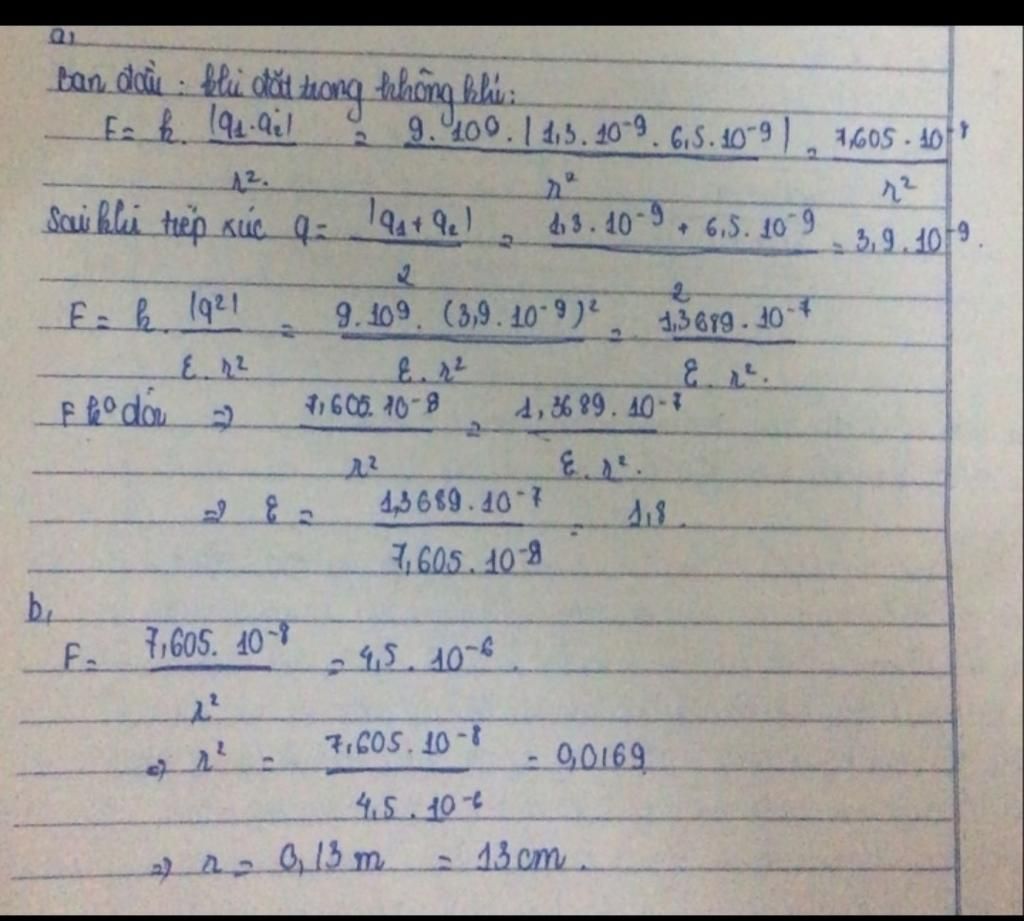 a,
Ban đầu : khi đặt trong không khí:
F = k. |q1.q2| / r². = 9.10⁹.|1,3.10⁻⁹. 6,5.10⁻⁹| / r² = 7,605.10⁻⁸ / r²
Sau khi tiếp xúc q = |q1+q2| / 2 = 1,3.10⁻⁹ + 6,5.10⁻⁹ / 2 = 3,9.10⁻⁹.
F = k. |q²| / ε.r² = 9.10⁹. (3,9.10⁻⁹)² / ε.r² = 1,3689.10⁻⁷ / ε.r².
F k° đổi ⇒ 7,605.10⁻⁸ / r² = 1,3689.10⁻⁷ / ε.r².
⇒ ε = 1,3689.10⁻⁷ / 7,605.10⁻⁸ = 1,8.
b,
F = 7,605.10⁻⁸ / r² = 4,5.10⁻⁶.
⇒ r² = 7,605.10⁻⁸ / 4,5.10⁻⁶ = 0,0169
⇒ r = 0,13m = 13cm.